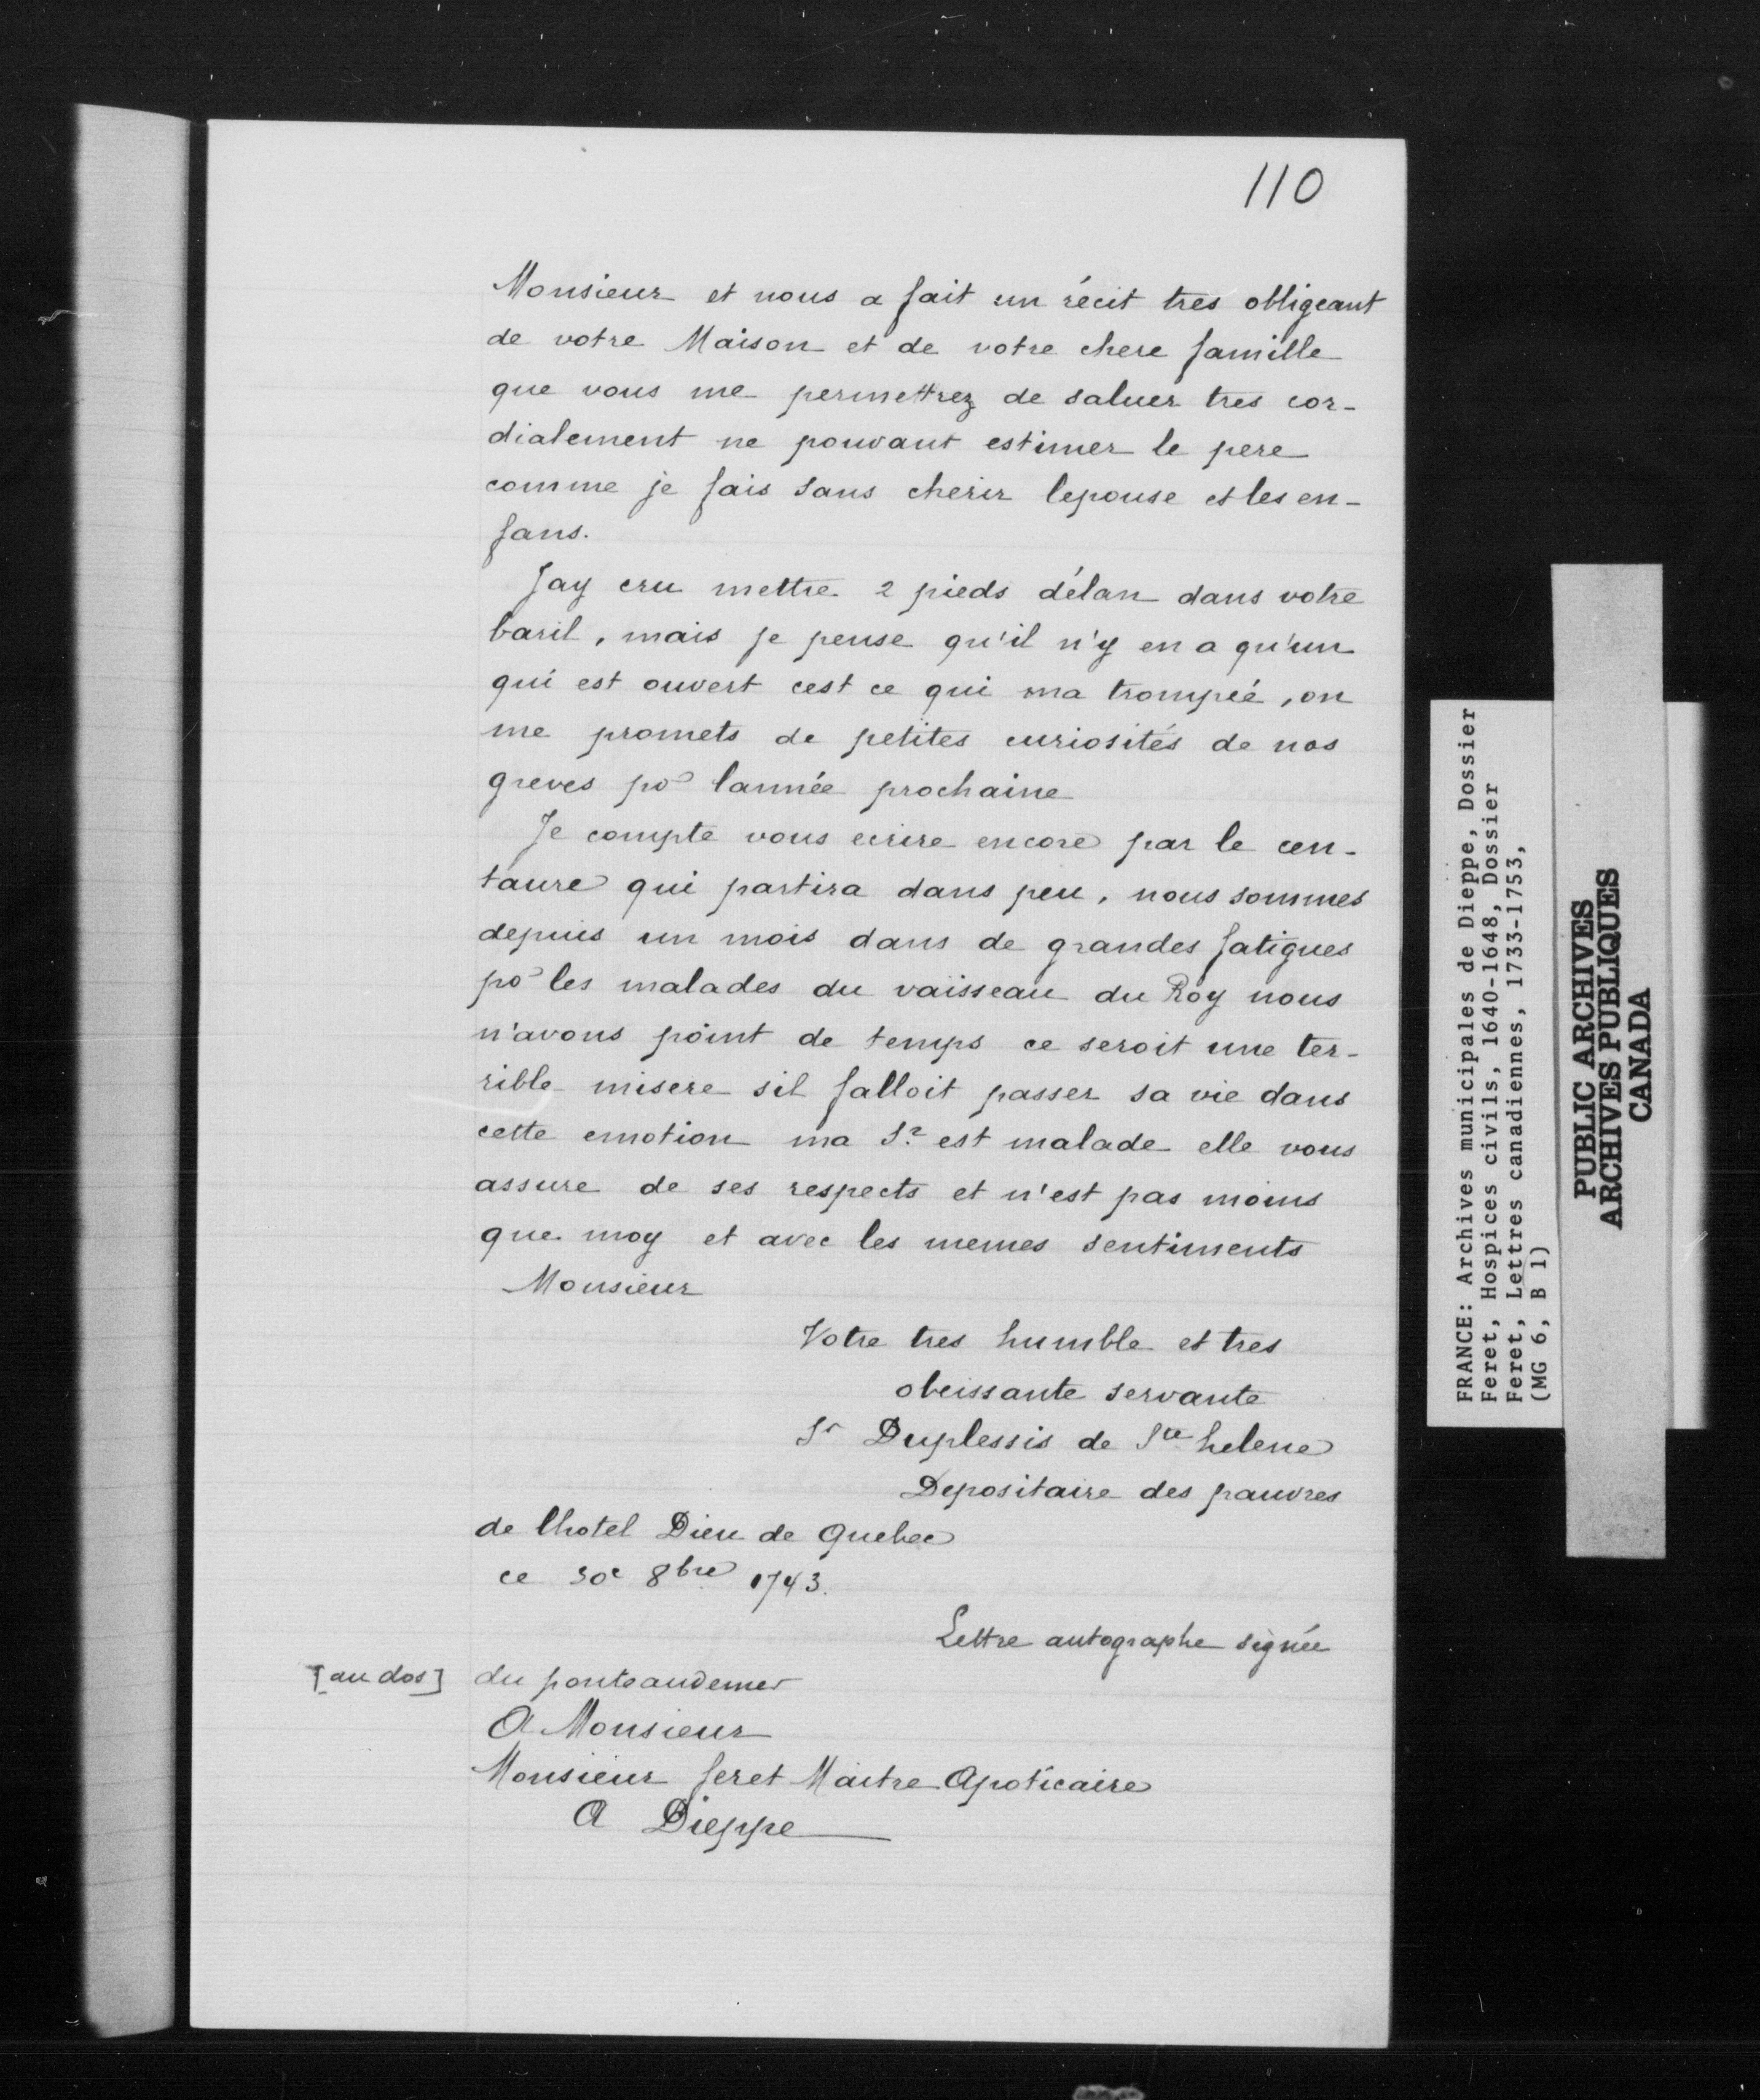 110
Monsieur et nous a fait un récit tres obligeant
de votre Maison et de votre chere famille
que vous me permettrez de saluer tres cor-
dialement ne pouvant estimer le pere
comme je fais sans cherir lepouse et les en-
fans.
Jay cru mettre 2 pieds d'élan dans votre
baril, mais je pense qu'il n'y en a qu'un
qui est ouvert cest ce qui ma trompée, on
me promets de petites curiosités de nos
greves po lannée prochaine
Je compte vous ecrire encore par le cen-
taure qui partira dans peu, nous sommes
depuis un mois dans de grandes fatigues
po les malades du vaisseau du Roy nous
n'avons point de temps ce seroit une ter-
rible misere sil falloit passer sa vie dans
cette emotion ma Sr est malade elle vous
assure de ses respects et n'est pas moins
que moy et avec les memes sentiments
Monsieur
Votre tres humble et tres
obeissante servante
Sr Duplessis de Ste helene
Depositaire des pauvres
de lhotel Dieu de Quebec
ce 30e 8bre 1743.
Lettre autographe signée
[au dos] du ponteaudemer
A Monsieur
Monsieur feret Maitre Apoticaire
A Dieppe
FRANCE: Archives municipales de Dieppe, Dossier
Feret, Hospices civils, 1640-1648, Dossier
Feret, Lettres canadiennes, 1733-1753,
(MG 6, B 1)
PUBLIC ARCHIVES
ARCHIVES PUBLIQUES
CANADA